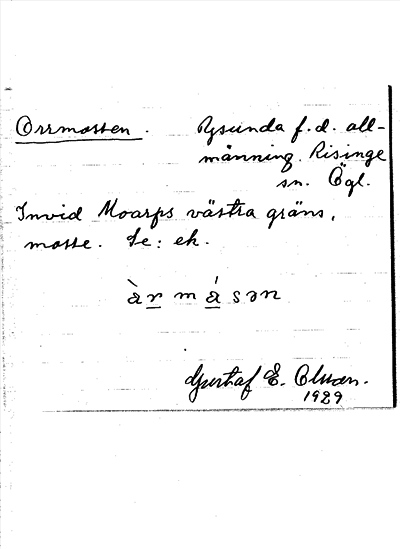 Orrmossen. Rysunda f.d. all-
männing. Risinge
sn. Ögl.
Invid Moarps västra gräns,
mosse. Se: ek.
àr mása̱n
Gustaf E.
1929